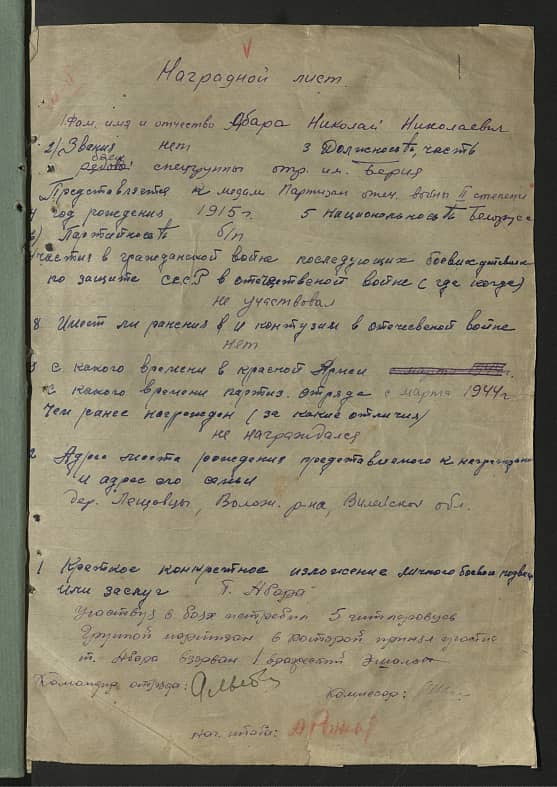 Наградной лист.
1. Фам. имя и отчество Абара Николай Николаевич
2) Звания нет 3 Должность, часть
боец
рядовой спецгруппы отр. им. Берия
Представляется к медали Партизан отеч. войны II степени
4 год рождения 1915 г. 5 Национальность Белорусс
6) Партийность б/п
участия в гражданской войне последующих боевых действиях
по защите СССР в отечественой войне (где когда)
не участвовал
8 Имеет ли ранения и контузии в отечевеной войне
нет
9 с какого времени в красной Армии
с какого времени партиз. отряда с марта 1944 г.
Чем ранее награжден (за какие отличия)
не награждался
2 Адрес места рождения представляемого к награждению
и адрес его семьи
дер. Лещовцы, Волож. р-на, Вилейской обл.
1 Краткое конкретное изложение личного боевого подвига
или заслуг Т. Абара
Участвуя в боях истребил 5 гитлеровцев
Группой партизан в которой принял участие
т. Абара взорван 1 вражеский эшалон
Командир отряда:
Комиссар:
Нач. штаба: